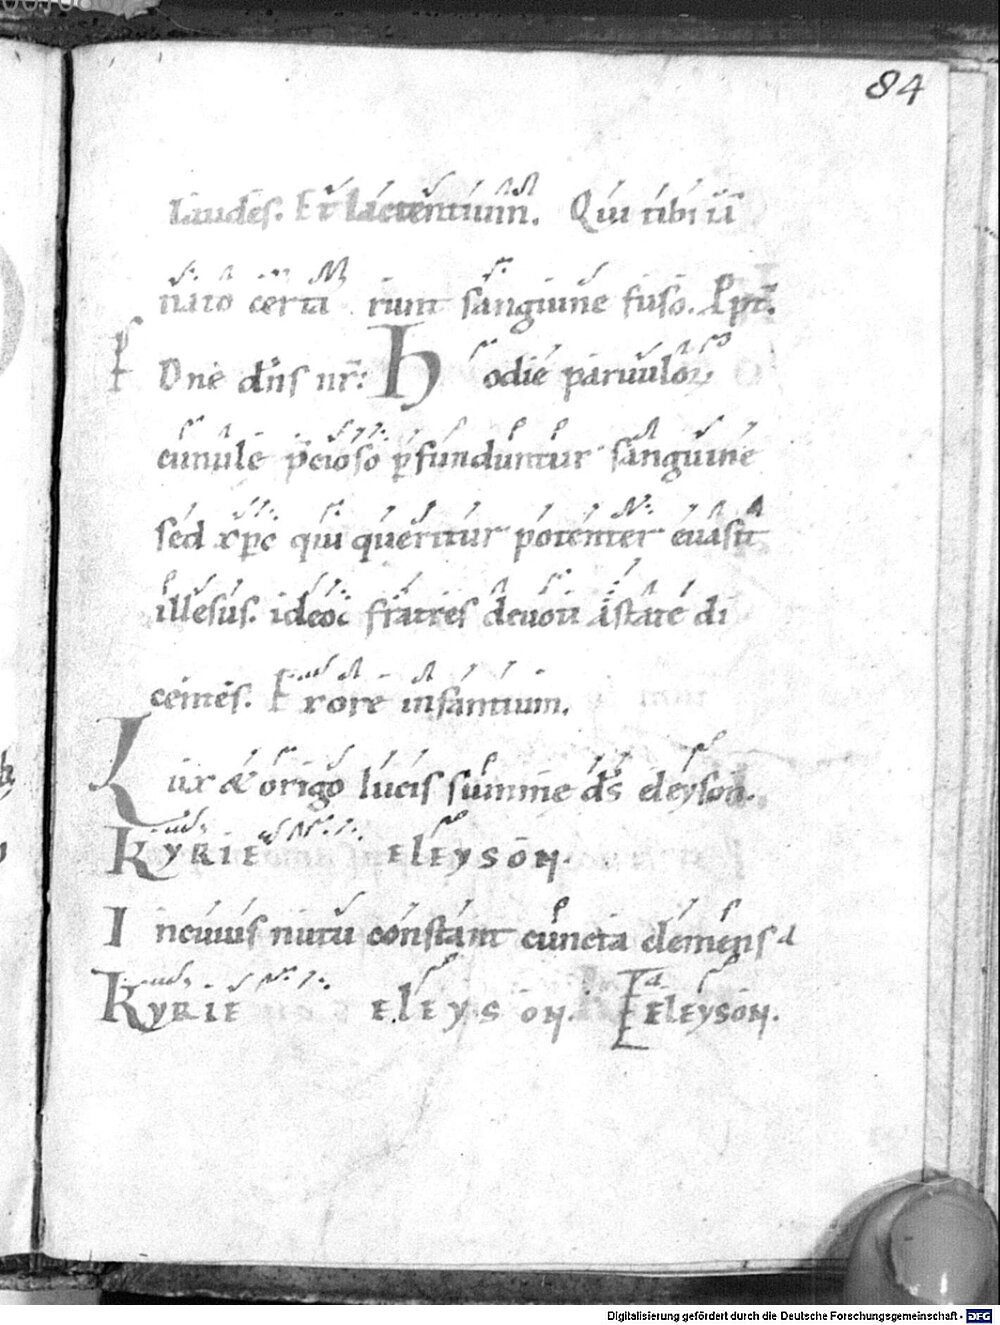 84
laudes. Et lactentium. Qui tibi ui
nato certa runt sanguine fuso. Ppt.
Ps Dne dns nr: Hodie paruulor
cunule pcioso pfunduntur sanguine
sed xpc qui queritur potenter euasit
illesus. ideoq fratres deuoti istate di
centes. Ex ore infantium.
Lux & origo lucis summe ds eleyson.
KYRIE eleyson.
In cuius nutu constant cuncta clemens
KYRIE eleyson. eleyson.
Digitalisierung gefördert durch die Deutsche Forschungsgemeinschaft - DFG